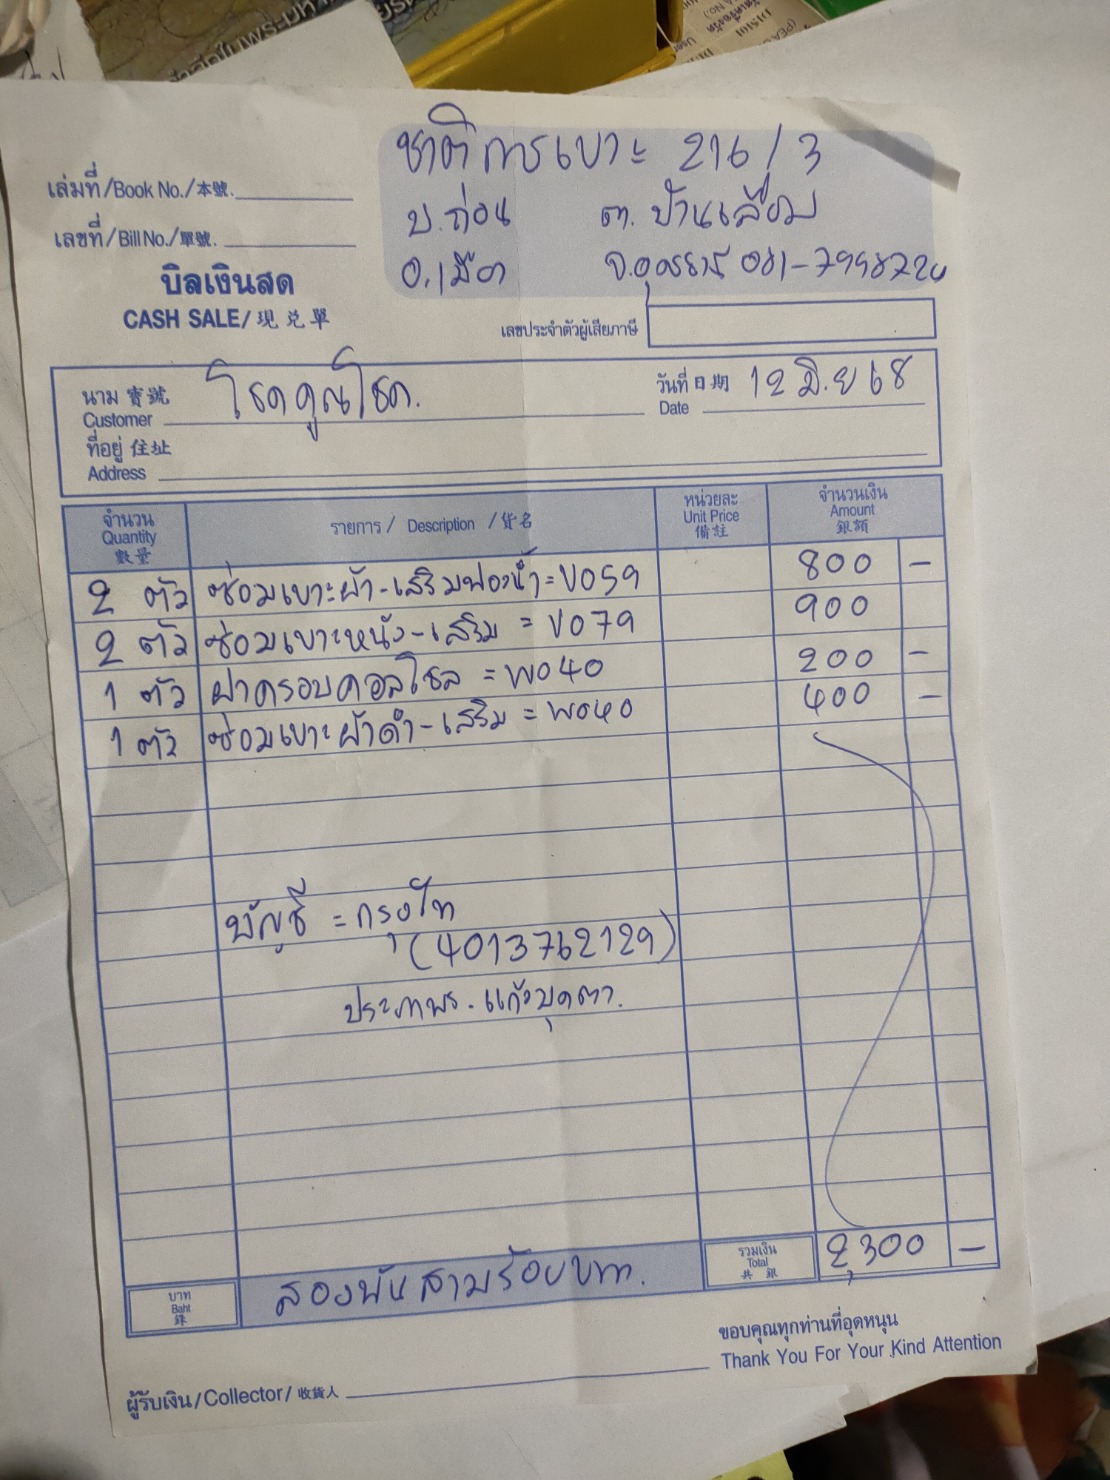 ชาติการเบาะ 216/3
เล่มที่/Book No./本號.
บ.ถ่อน ต.บ้านเลื่อม
เลขที่/Bill No./單號.
อ.เมือง จ.อุดรธานี 081-7998720
บิลเงินสด
CASH SALE/現兑單
เลขประจำตัวผู้เสียภาษี
นาม 寶號 โชคคูณโชค. วันที่ 日期 12 มิ.ย 68
Customer Date
ที่อยู่ 住址
Address
จำนวน รายการ / Description / 貨名 หน่วยละ จำนวนเงิน
Quantity Unit Price Amount
數量 備註 銀額
2 ตัว ซ่อมเบาะผ้า-เสริมฟองน้ำ=V059 800 -
2 ตัว ซ่อมเบาะหนัง-เสริม = V079 900
1 ตัว ฝาครอบคอลโซล = W040 200 -
1 ตัว ซ่อมเบาะผ้าดำ-เสริม = W040 400 -
บัญชี = กรุงไท
(4013762129)
ประภาพร. แก้วบุดตา.
บาท สองพันสามร้อยบาท. รวมเงิน 2,300 -
Baht Total
銖 共銀
ขอบคุณทุกท่านที่อุดหนุน
Thank You For Your Kind Attention
ผู้รับเงิน/Collector/收貨人